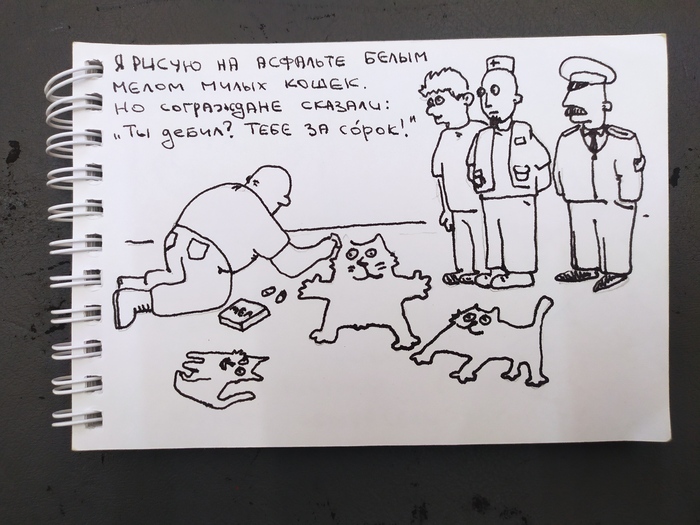 Я РИСУЮ НА АСФАЛЬТЕ БЕЛЫМ
МЕЛОМ МИЛЫХ КОШЕК.
НО СОГРАЖДАНЕ СКАЗАЛИ:
„ТЫ ДЕБИЛ? ТЕБЕ ЗА СО́РОК!"
МЕЛ